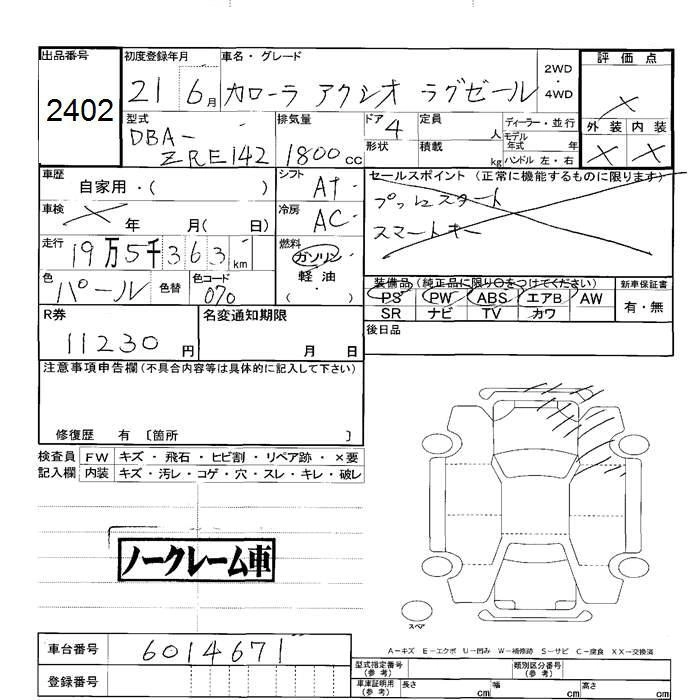 出品番号
2402
初度登録年月
21 6月
車名・グレード
カローラ アクシオ ラグゼール
2WD
・
4WD
評価点
×
外装 内装
× ×
型式
DBA-
ZRE142
排気量
1800cc
ドア 4
形状
定員 人
積載 kg
ディーラー・並行
モデル年式 年
ハンドル 左・右
車歴
自家用・( )
シフト
AT
車検
× 年 月( 日)
冷房
AC
走行
19万5千363km
燃料
ガソリン
軽油
・
( )
色
パール
色替
色コード
070
セールスポイント (正常に機能するものに限ります)
プッシュスタート
スマートキー
装備品 (純正品に限り○をつけてください)
PS PW ABS エアB AW
SR ナビ TV カワ
新車保証書
有・無
後日品
R券
11230円
名変通知期限
月 日
注意事項申告欄 (不具合内容等は具体的に記入して下さい)
修復歴 有 〔箇所 〕
検査員記入欄
FW キズ・飛石・ヒビ割・リペア跡・×要
内装 キズ・汚レ・コゲ・穴・スレ・キレ・破レ
ノークレーム車
スペア
A-キズ E-エクボ U-凹み W-補修跡 S-サビ C-腐食 XX-交換済
車台番号
6014671
登録番号
型式指定番号
(参考)
類別区分番号
(参考)
車庫証明用
(参考)
長さ cm
幅 cm
高さ cm